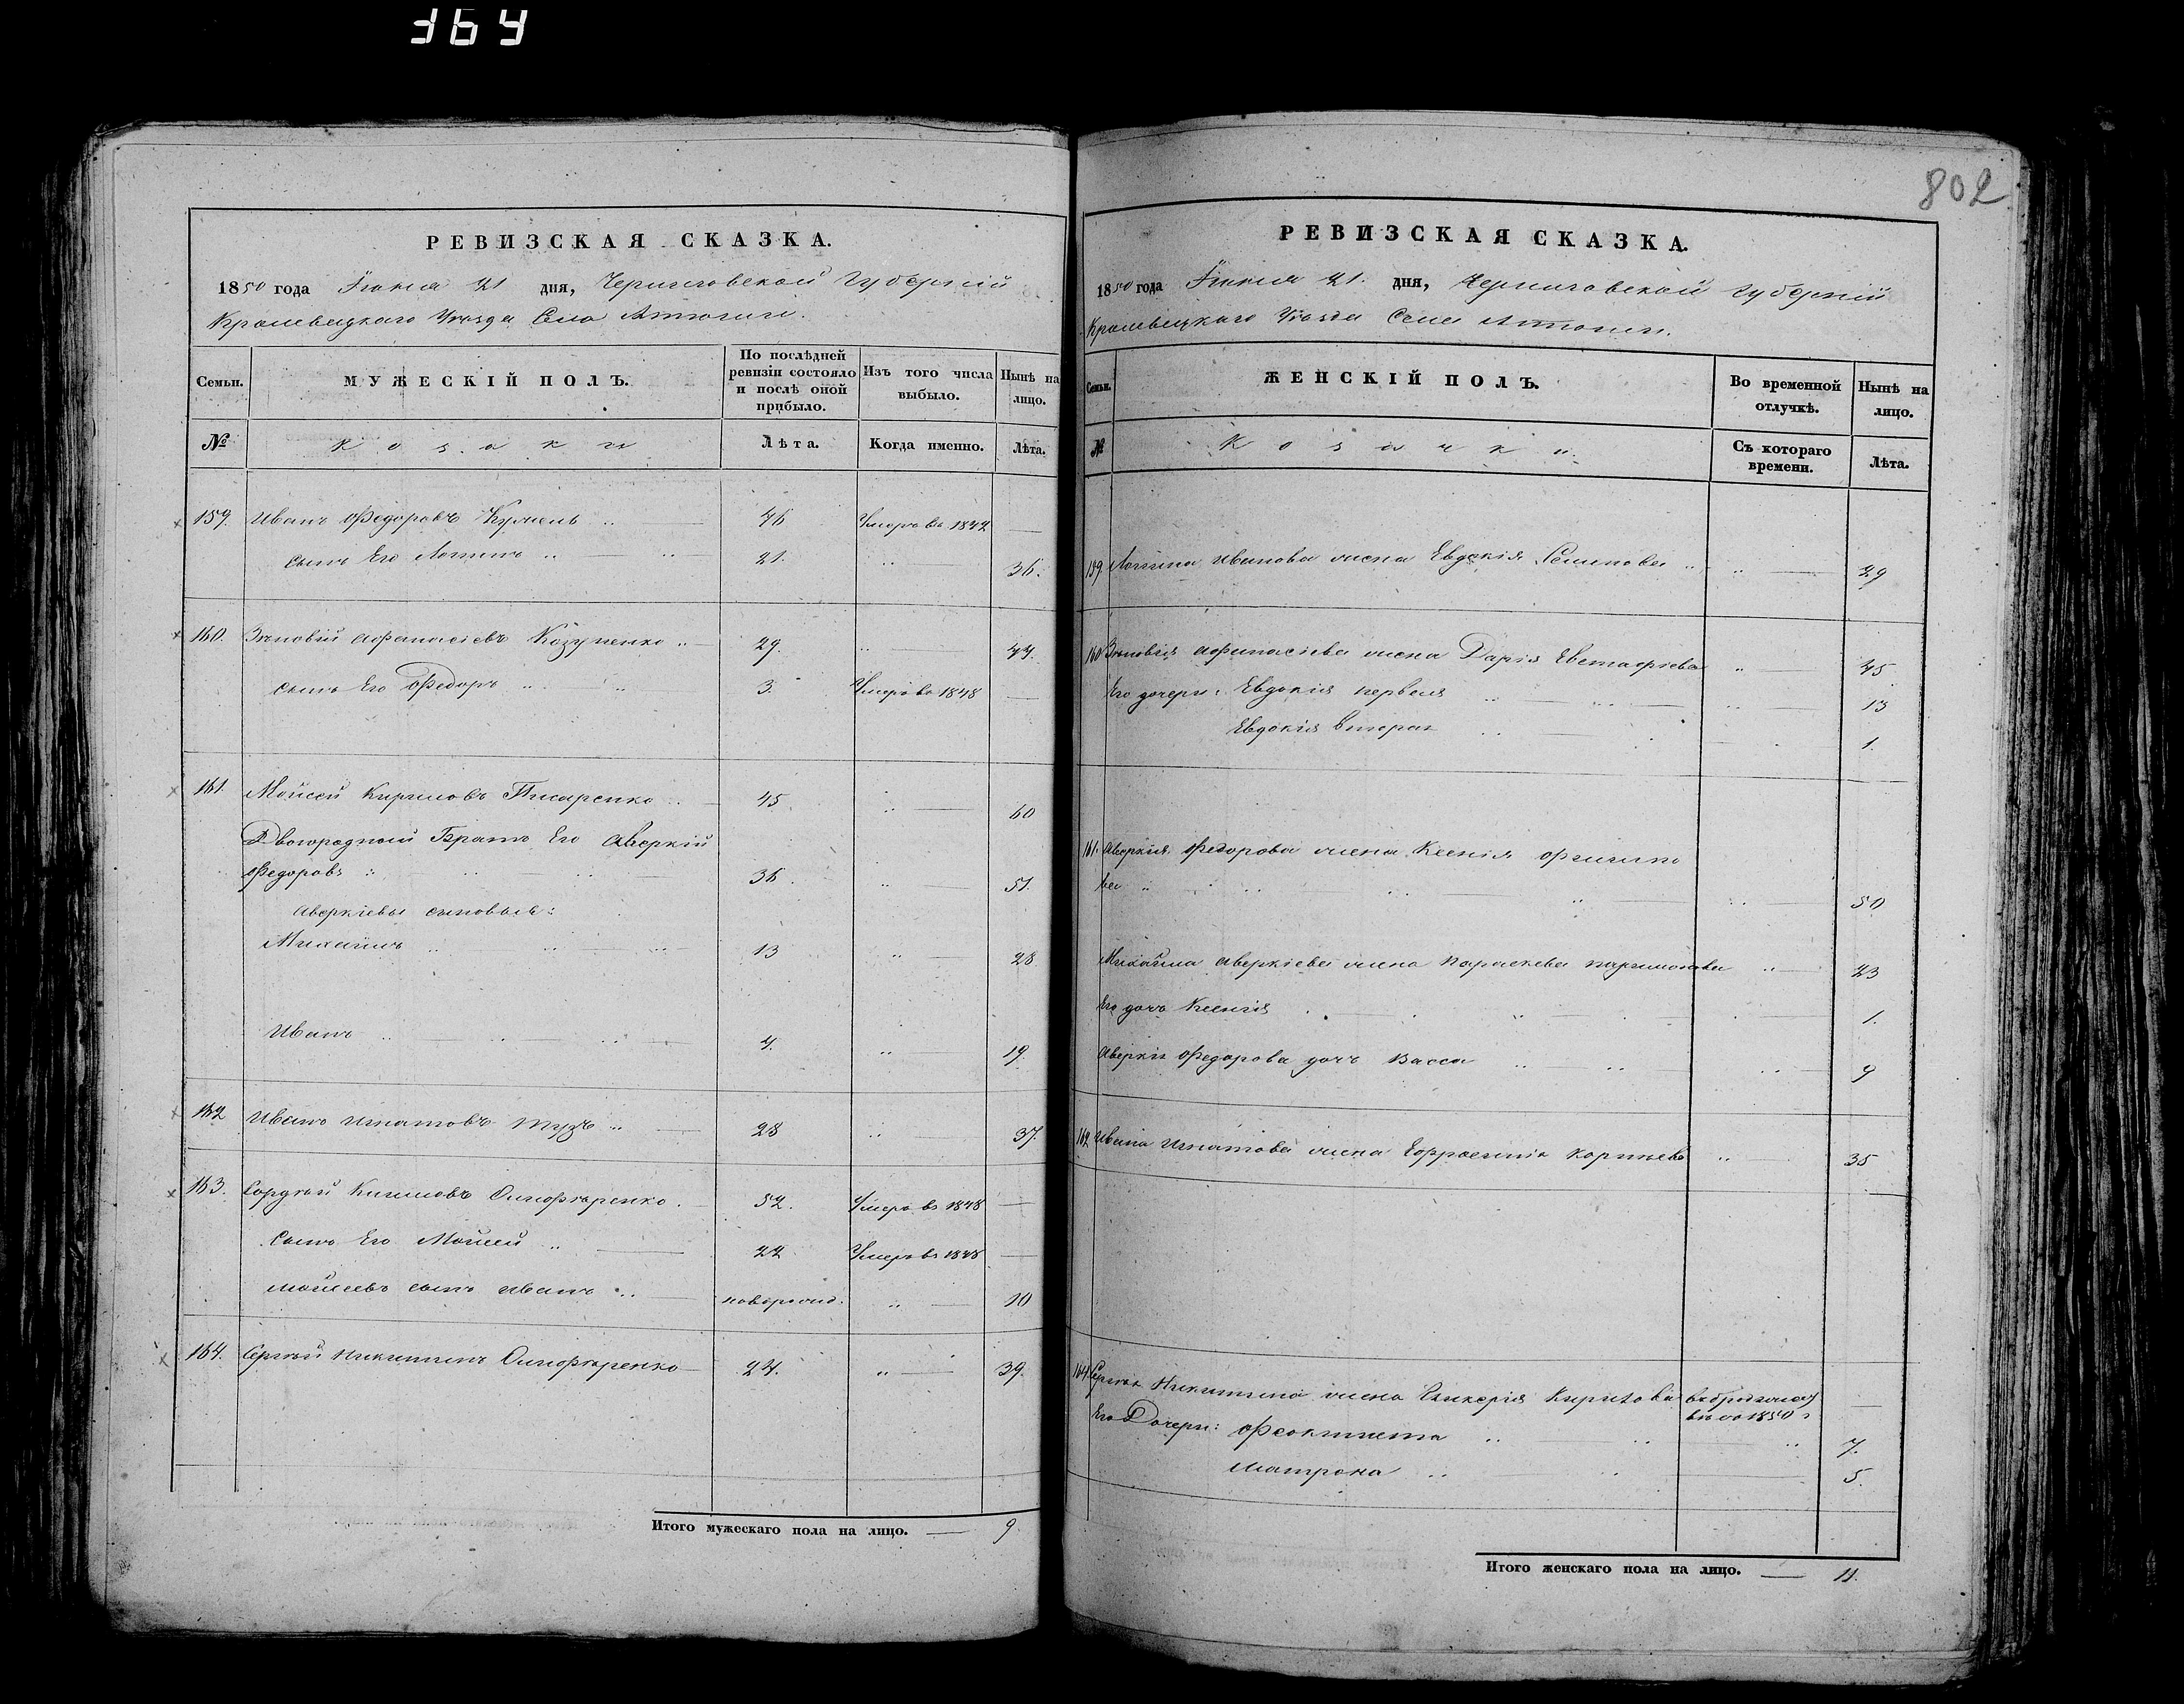 364
802
РЕВИЗСКАЯ СКАЗКА.
1850 года Іюня 21 дня, Черниговской Губерніи
Кролевецкаго Уѣзда Села Атюши.
Семьи. МУЖЕСКІЙ ПОЛЪ. По послѣдней ревизіи состояло и послѣ оной прибыло. Изъ того числа выбыло. Нынѣ на лицо.
№ Козаки Лѣта. Когда именно. Лѣта.
159. Иванъ Федоровъ 46 Умеръ въ 1844 —
Сынъ Его Логинъ 21. 36.
160. Зѣновій Афанасіевъ Козупенко 29. 44.
Сынъ Его Федоръ 3. Умеръ въ 1848 —
161. Мойсей Кириловъ Писаренко 45. 60
Двоюродный Братъ Его Аверкій
Федоровъ 36. 51.
Аверкіевы сыновья:
Михайло 13 28
Иванъ 4. 19.
162 Иванъ Игнатовъ Тузъ 28 37.
163. Климовъ Олиференко 52. Умеръ въ 1848 —
Сынъ Его Мойсей 22 Умеръ въ 1848 —
Мойсеевъ сынъ Иванъ новорожд. 10
164. Сергѣй Никитинъ Олиференко 24. 39.
Итого мужескаго пола на лицо. — 9
РЕВИЗСКАЯ СКАЗКА.
1850 года Іюня 21. дня, Черниговской Губерніи
Кролевецкаго Уѣзда Села Атюши.
Семьи. ЖЕНСКІЙ ПОЛЪ. Во временной отлучкѣ. Нынѣ на лицо.
№ Козачки. Съ котораго времени. Лѣта.
159 Логина Иванова жена Евдокія Семенова 29
160 Зѣновія Афанасіева жена Дарія Евстафіева 45
Его дочери: Евдокія первая 13
Евдокія вторая 1.
161. Аверкія Федорова жена Ксенія Филипо
ва 50
Михайла Аверкіева жена Параскева 23
Его дочь Ксенія 1.
Аверкія Федорова дочь Васса 9
162 Ивана Игнатова жена Ефросинія Корнѣева 35
164 Сергѣя Никитина жена Гликерія —
въ 1850 г
Его Дочери: Феоктиста 7.
Матрона 5.
Итого женскаго пола на лицо. — 11.